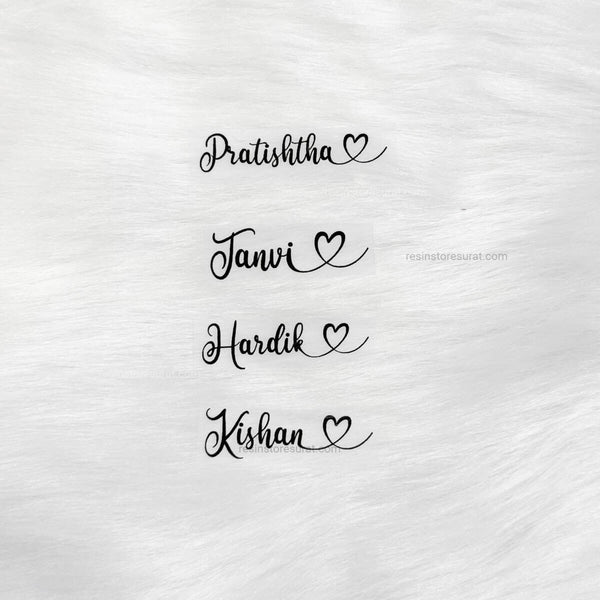 Pratishtha
Tanvi
resinstoresurat.com
Hardik
Kishan
resinstoresurat.com